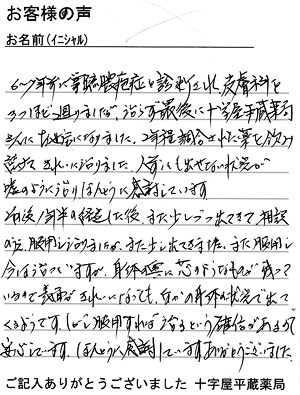 お客様の声
お名前(イニシャル)
6〜7年前に掌蹠膿疱症と診断され、皮膚科を
3つほど廻りましたが、治らず最後に十字屋平蔵薬局
さんにお世話になりました。2年程調合された薬を飲み
続けて きれいに治りました 人前にも出せない状況が
嘘のように治り ほんとうに感謝しています
その後1年半が経過した後、また少しづつ出てきて、相談
の元、服用し治りましたが、また少し出てきました。また服用し
今は治っていますが、身体の奥に芯のようなものが残って
いるので表面がきれいになっても、自分の身体の状況で出て
くるようです しかし服用すれば治るという確信があるので
安心しています。ほんとうに感謝しています ありがとうございました。
ご記入ありがとうございました 十字屋平蔵薬局